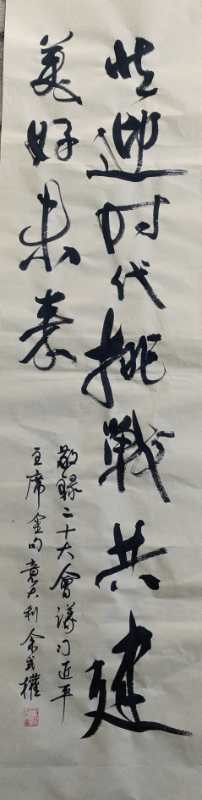 共迎时代挑戰共建
美好未来
敬録二十大會議习近平
主席金句意大利余權